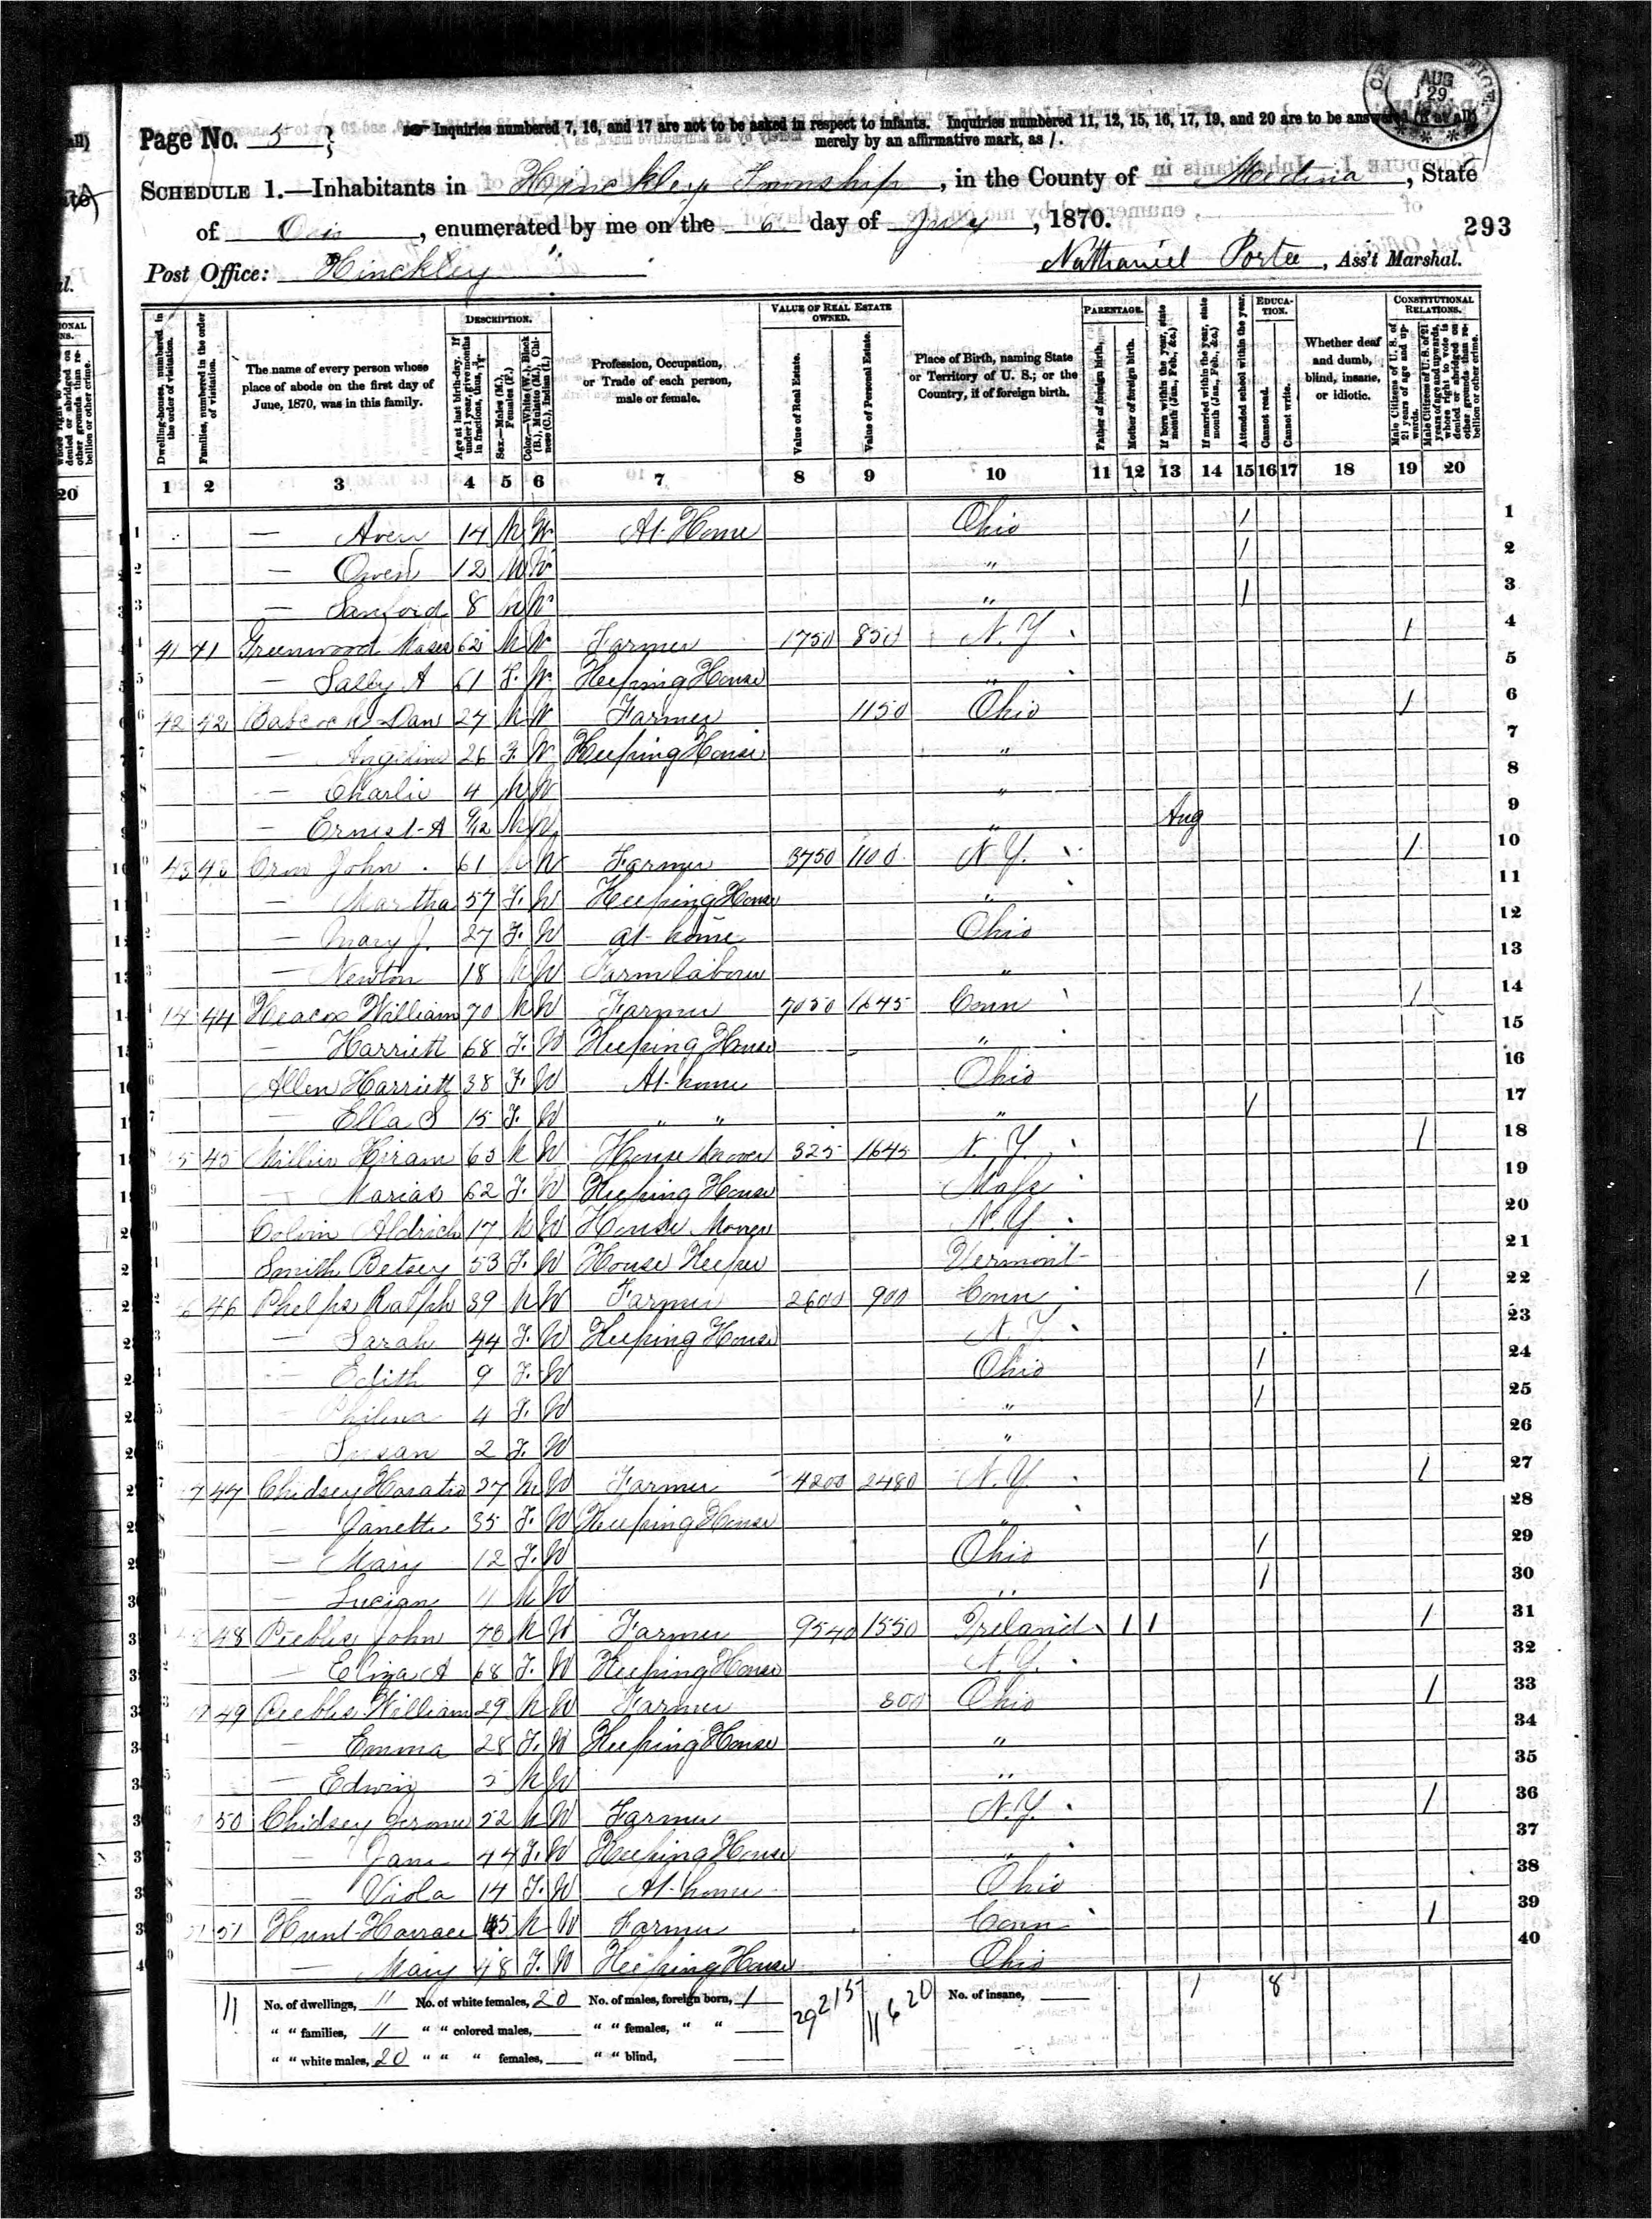 Page No. 5
Inquiries numbered 7, 16, and 17 are not to be asked in respect to infants. Inquiries numbered 11, 12, 15, 16, 17, 19, and 20 are to be answered (if at all)
merely by an affirmative mark, as /.
SCHEDULE 1.—Inhabitants in Hinckley Township, in the County of Medina, State
of Ohio, enumerated by me on the 6 day of July, 1870.
293
Post Office: Hinckley
Nathaniel Porter, Ass't Marshal.
AUG 29
Dwelling-houses, numbered in the order of visitation.
Families, numbered in the order of visitation.
The name of every person whose place of abode on the first day of June, 1870, was in this family.
DESCRIPTION.
Age at last birth-day. If under 1 year, give months in fractions, thus,
Sex.—Males (M.), Females (F.)
Color.—White (W.), Black (B.), Mulatto (M.), Chinese (C.), Indian (I.)
Profession, Occupation, or Trade of each person, male or female.
VALUE OF REAL ESTATE OWNED.
Value of Real Estate.
Value of Personal Estate.
Place of Birth, naming State or Territory of U. S.; or the Country, if of foreign birth.
PARENTAGE.
Father of foreign birth.
Mother of foreign birth.
If born within the year, state month (Jan., Feb., &c.)
If married within the year, state month (Jan., Feb., &c.)
Attended school within the year.
EDUCATION.
Cannot read.
Cannot write.
Whether deaf and dumb, blind, insane, or idiotic.
CONSTITUTIONAL RELATIONS.
Male Citizens of U. S. of 21 years of age and upwards.
Male Citizens of U. S. of 21 years of age and upwards, whose right to vote is denied or abridged on other grounds than rebellion or other crime.
1 2 3 4 5 6 7 8 9 10 11 12 13 14 15 16 17 18 19 20
1 — Avery 14 M W At Home Ohio / 1
2 — Owen 12 M W " / 2
3 — Sanford 8 M W " / 3
4 41 41 Greenwood Moses 62 M W Farmer 1750 850 N.Y. / 4
5 — Sally A 61 F. W Keeping House " 5
6 42 42 Babcock Dan 27 M W Farmer 1150 Ohio / 6
7 — Angeline 26 F. W Keeping House " 7
8 — Charlie 4 M W " 8
9 — Ernest A 9/12 M W " Aug 9
10 43 43 Orm John 61 M W Farmer 3750 1100 N.Y. / 10
11 — Martha 57 F. W Keeping House " 11
12 — Mary J. 27 F. W at home Ohio 12
13 — Newton 18 M W Farm laborer " 13
14 44 Heacox William 70 M W Farmer 7050 1645 Conn / 14
15 — Harriett 68 F. W Keeping House " 15
16 Allen Harriett 38 F. W At home Ohio 16
17 — Ella S 15 F. W " " " / 17
18 45 Hiram 63 M W House Mover 325 1645 N.Y. / 18
19 — Maria 62 F. W Keeping House Mass 19
20 Colvin Aldrich 17 M W House Mover N.Y. 20
21 Smith Betsey 53 F. W House Keeper Vermont 21
22 46 Phelps Ralph 39 M W Farmer 2600 900 Conn / 22
23 — Sarah 44 F. W Keeping House N.Y. 23
24 — Edith 9 F. W Ohio / 24
25 — Philena 4 F. W " / 25
26 — Susan 2 F. W " 26
27 47 Chidsey Horatio 37 M W Farmer 4200 2480 N.Y. / 27
28 — Janette 35 F. W Keeping House " 28
29 — Mary 12 F. W Ohio / 29
30 — Lucian 11 M W " / 30
31 48 Peebles John 73 M W Farmer 9540 1550 Ireland / / / 31
32 — Eliza A 68 F. W Keeping House N.Y. 32
33 49 Peebles William 29 M W Farmer 800 Ohio / 33
34 — Emma 28 F. W Keeping House " 34
35 — Edwin M W " 35
36 50 Chidsey Jerome 52 M W Farmer N.Y. / 36
37 — Jane 44 F. W Keeping House " 37
38 — Viola 14 F. W At home Ohio 38
39 51 51 Hunt Horrace 45 M W Farmer Conn / 39
40 — Mary 48 F. W Keeping House Ohio 40
11 No. of dwellings, 11 No. of white females, 20 No. of males, foreign born, 1 29215 11620 No. of insane, 1 8
" " families, 11 " " colored males, " " females, " "
" " white males, 20 " " " females, " " blind,